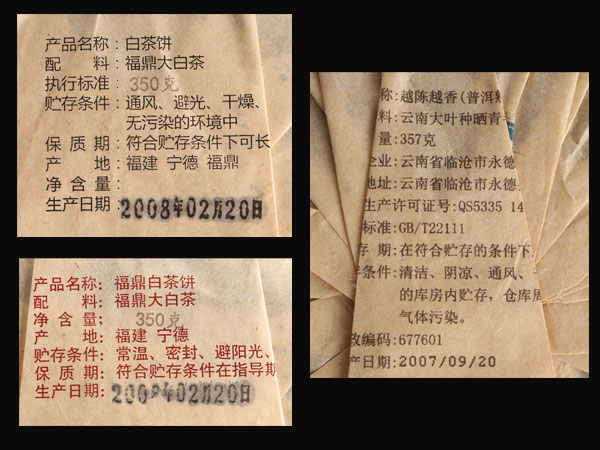 产品名称：白茶饼
配 料：福鼎大白茶
执行标准：350克
贮存条件：通风、避光、干燥、
无污染的环境中
保 质 期：符合贮存条件下可长
产 地：福建 宁德 福鼎
净 含 量：
生产日期：2008年02月20日
产品名称：福鼎白茶饼
配 料：福鼎大白茶
净 含 量：350克
产 地：福建 宁德
贮存条件：常温、密封、避阳光、
保 质 期：符合贮存条件在指导期
生产日期：2008年02月20日
称:越陈越香(普洱
料:云南大叶种晒青
量:357克
企业:云南省临沧市永德
地址:云南省临沧市永德
生产许可证号:QS5335 14
标准:GB/T22111
存 期:在符合贮存的条件下
条件:清洁、阴凉、通风、
的库房内贮存，仓库周
气体污染。
改编码:677601
产日期:2007/09/20